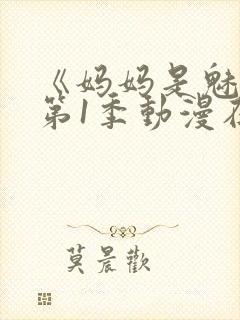 《妈妈是魅
第1季動漫在
莫晨歡